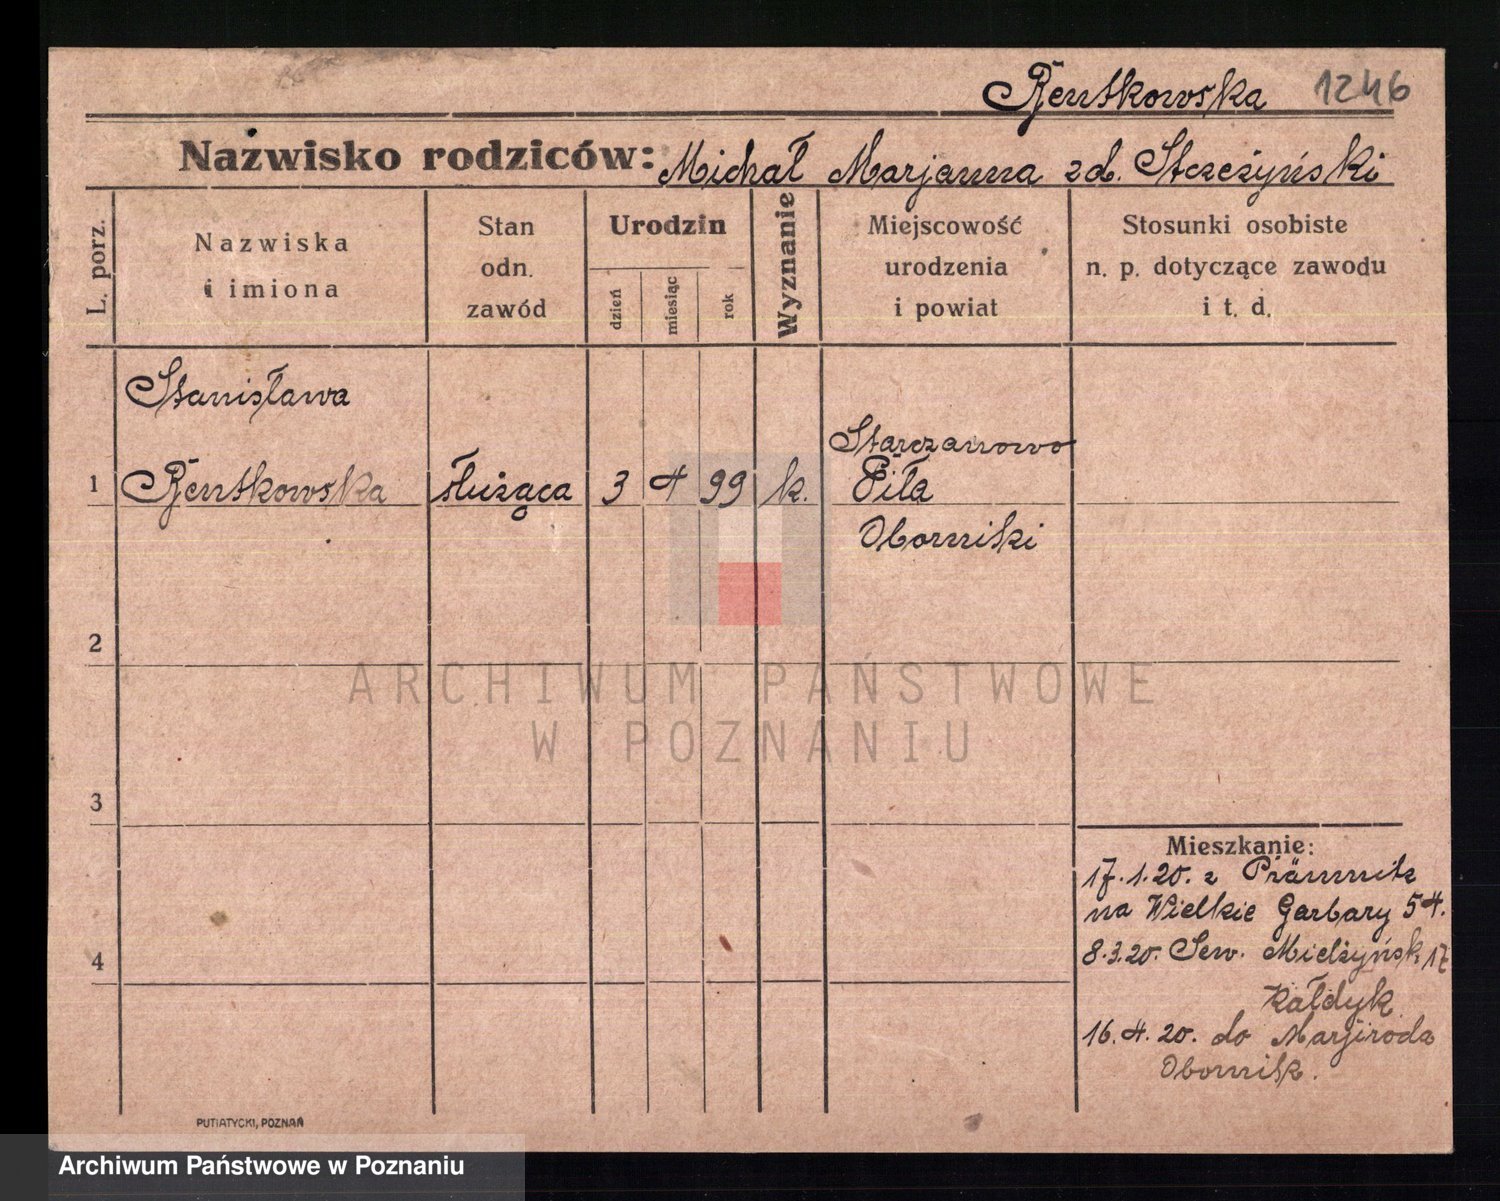 Rentkowska 1246
Nazwisko rodziców: Michał Marjanna zd. Strzeżyński
L. porz.
Nazwiska
i imiona
Stan
odn.
zawód
Urodzin
dzień
miesiąc
rok
Wyznanie
Miejscowość
urodzenia
i powiat
Stosunki osobiste
n. p. dotyczące zawodu
i t. d.
Stanisława
Starczanowo
1 Rentkowska służąca 3 4 99 k. Piła
Oborniki
2
3
4
Mieszkanie:
17.1.20. z
na Wielkie Garbary 54.
8.3.20. Sew. Mielżyńsk 17
Kałdyk
16.4.20. do
Obornik.
PUTIATYCKI, POZNAŃ
ARCHIWUM PAŃSTWOWE
W POZNANIU
Archiwum Państwowe w Poznaniu